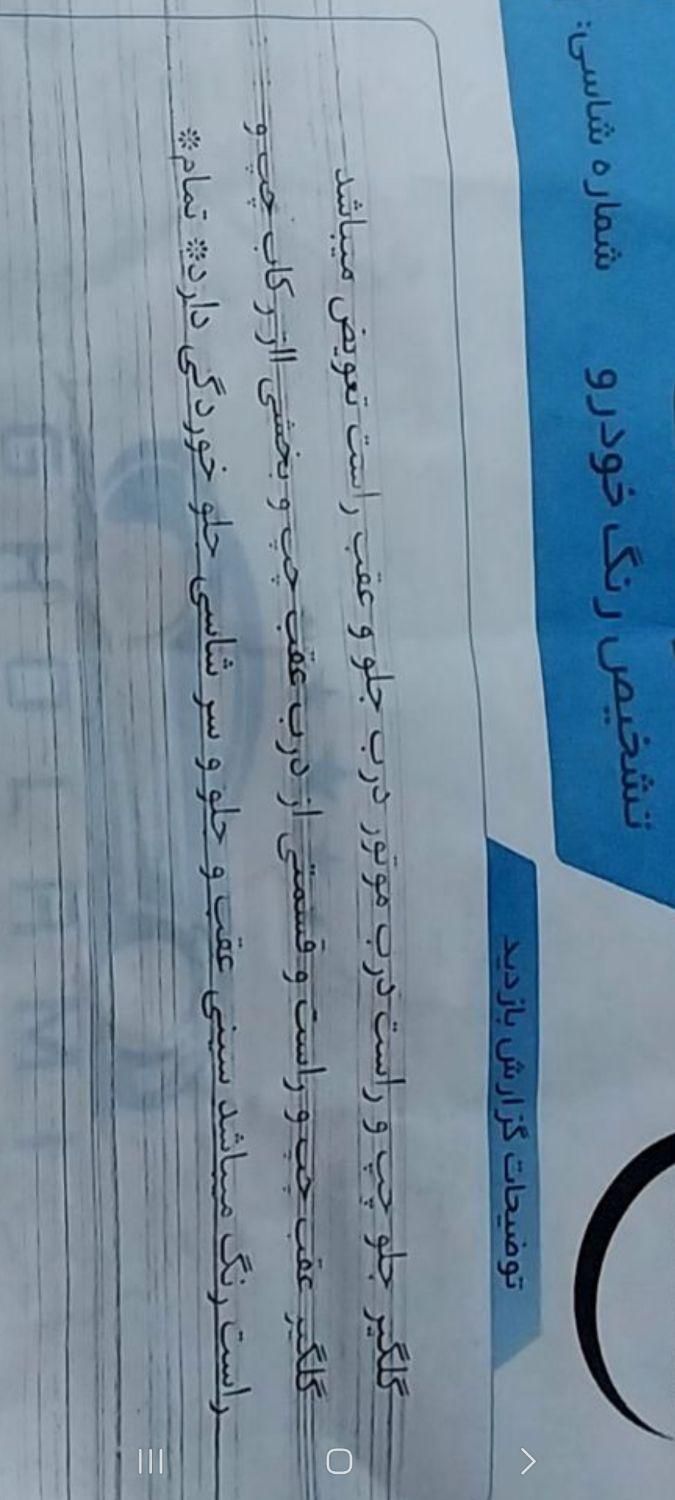 شماره شاسی:
تشخیص رنگ خودرو
توضیحات گزارش بازدید
گلگیر جلو چپ و راست درب موتور درب جلو و عقب راست تعویض میباشد
گلگیر عقب چپ و راست و قسمتی از درب عقب چپ و بخشی ااز رکاب چپ و
راست رنگ میباشد سینی عقب و جلو و سر شاسی جلو خوردگی دارد* تمام*
GHOLHOM